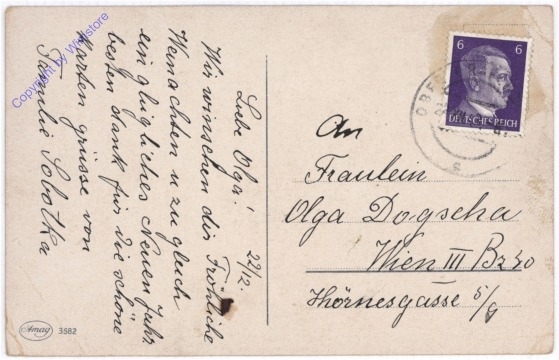 22/12.
Liebe Olga!
Wir wünschen dir Fröhliche
Weinachten u zu gleich
ein glügliches Neuen Jahr
besten dank für die schöne
Karten grüsse von
Familie Sobotka
An
Fraulein
Olga Dogscha
Wien III Bz 40
Hörnesgasse 5/9
6 6
DEUTSCHES REICH
Amag 3582
Copyright by Windstore